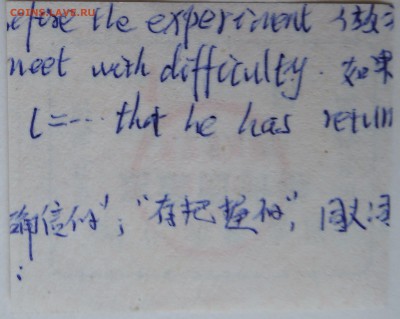 COINS.SU
efore the experiment (做
meet with difficulty. 如果
(=...that he has return
确信的"; "有把握的", 同义词
;